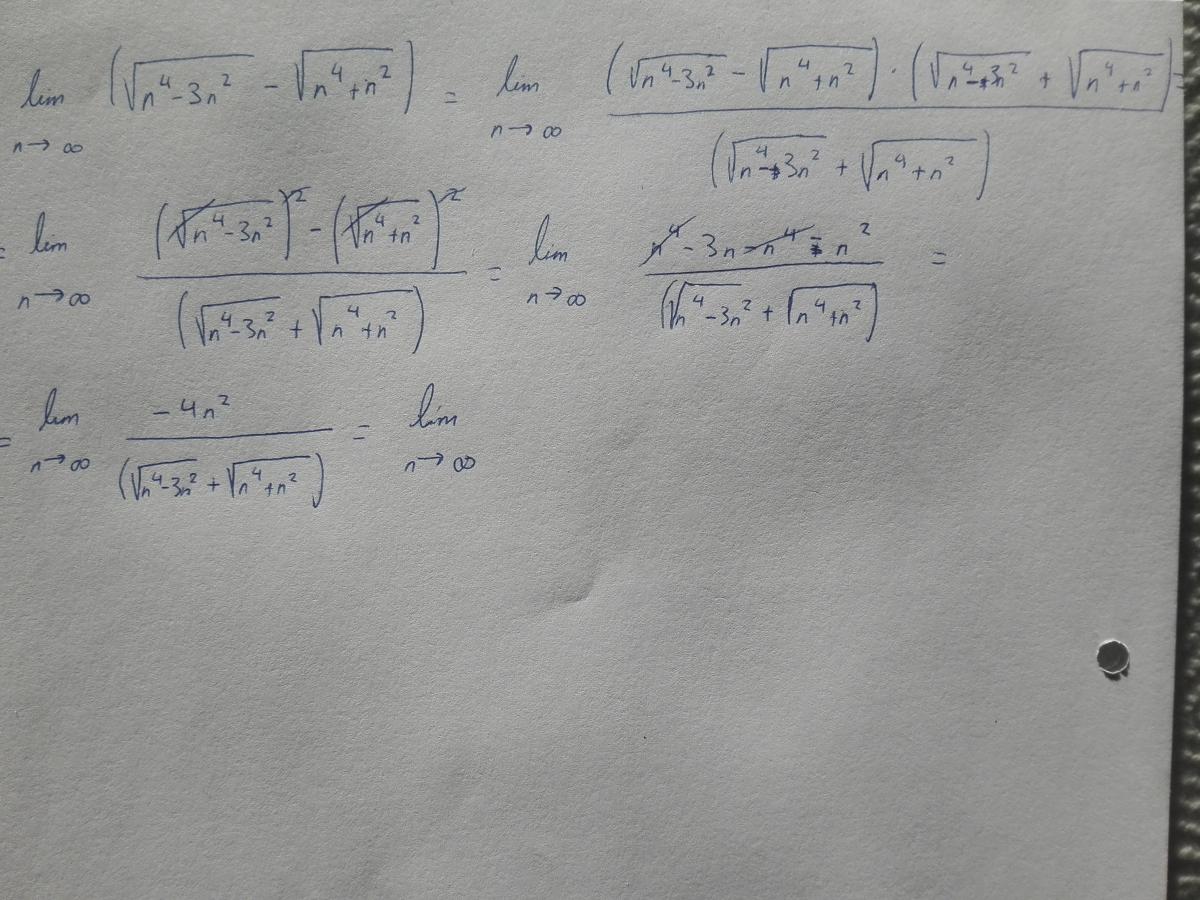 lim n→∞ (√(n⁴-3n²) - √(n⁴+n²)) = lim n→∞ (√(n⁴-3n²) - √(n⁴+n²)) · (√(n⁴-3n²) + √(n⁴+n²)) / (√(n⁴-3n²) + √(n⁴+n²)) =
= lim n→∞ ((√(n⁴-3n²))² - (√(n⁴+n²))²) / (√(n⁴-3n²) + √(n⁴+n²)) = lim n→∞ (n⁴ - 3n - n⁴ - n²) / (√(n⁴-3n²) + √(n⁴+n²)) =
= lim n→∞ -4n² / (√(n⁴-3n²) + √(n⁴+n²)) = lim n→∞